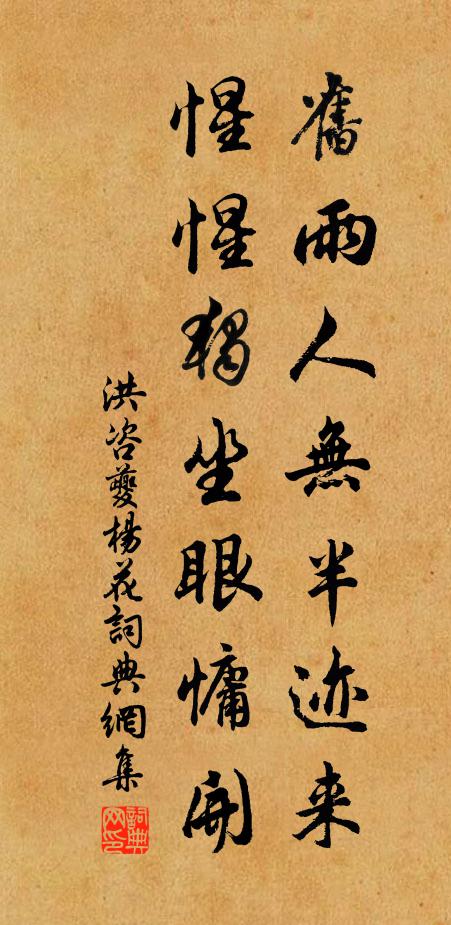 舊雨人無半迹来
惺惺獨坐眼慵開
洪咨夔楊花詞典網集
詞典網印